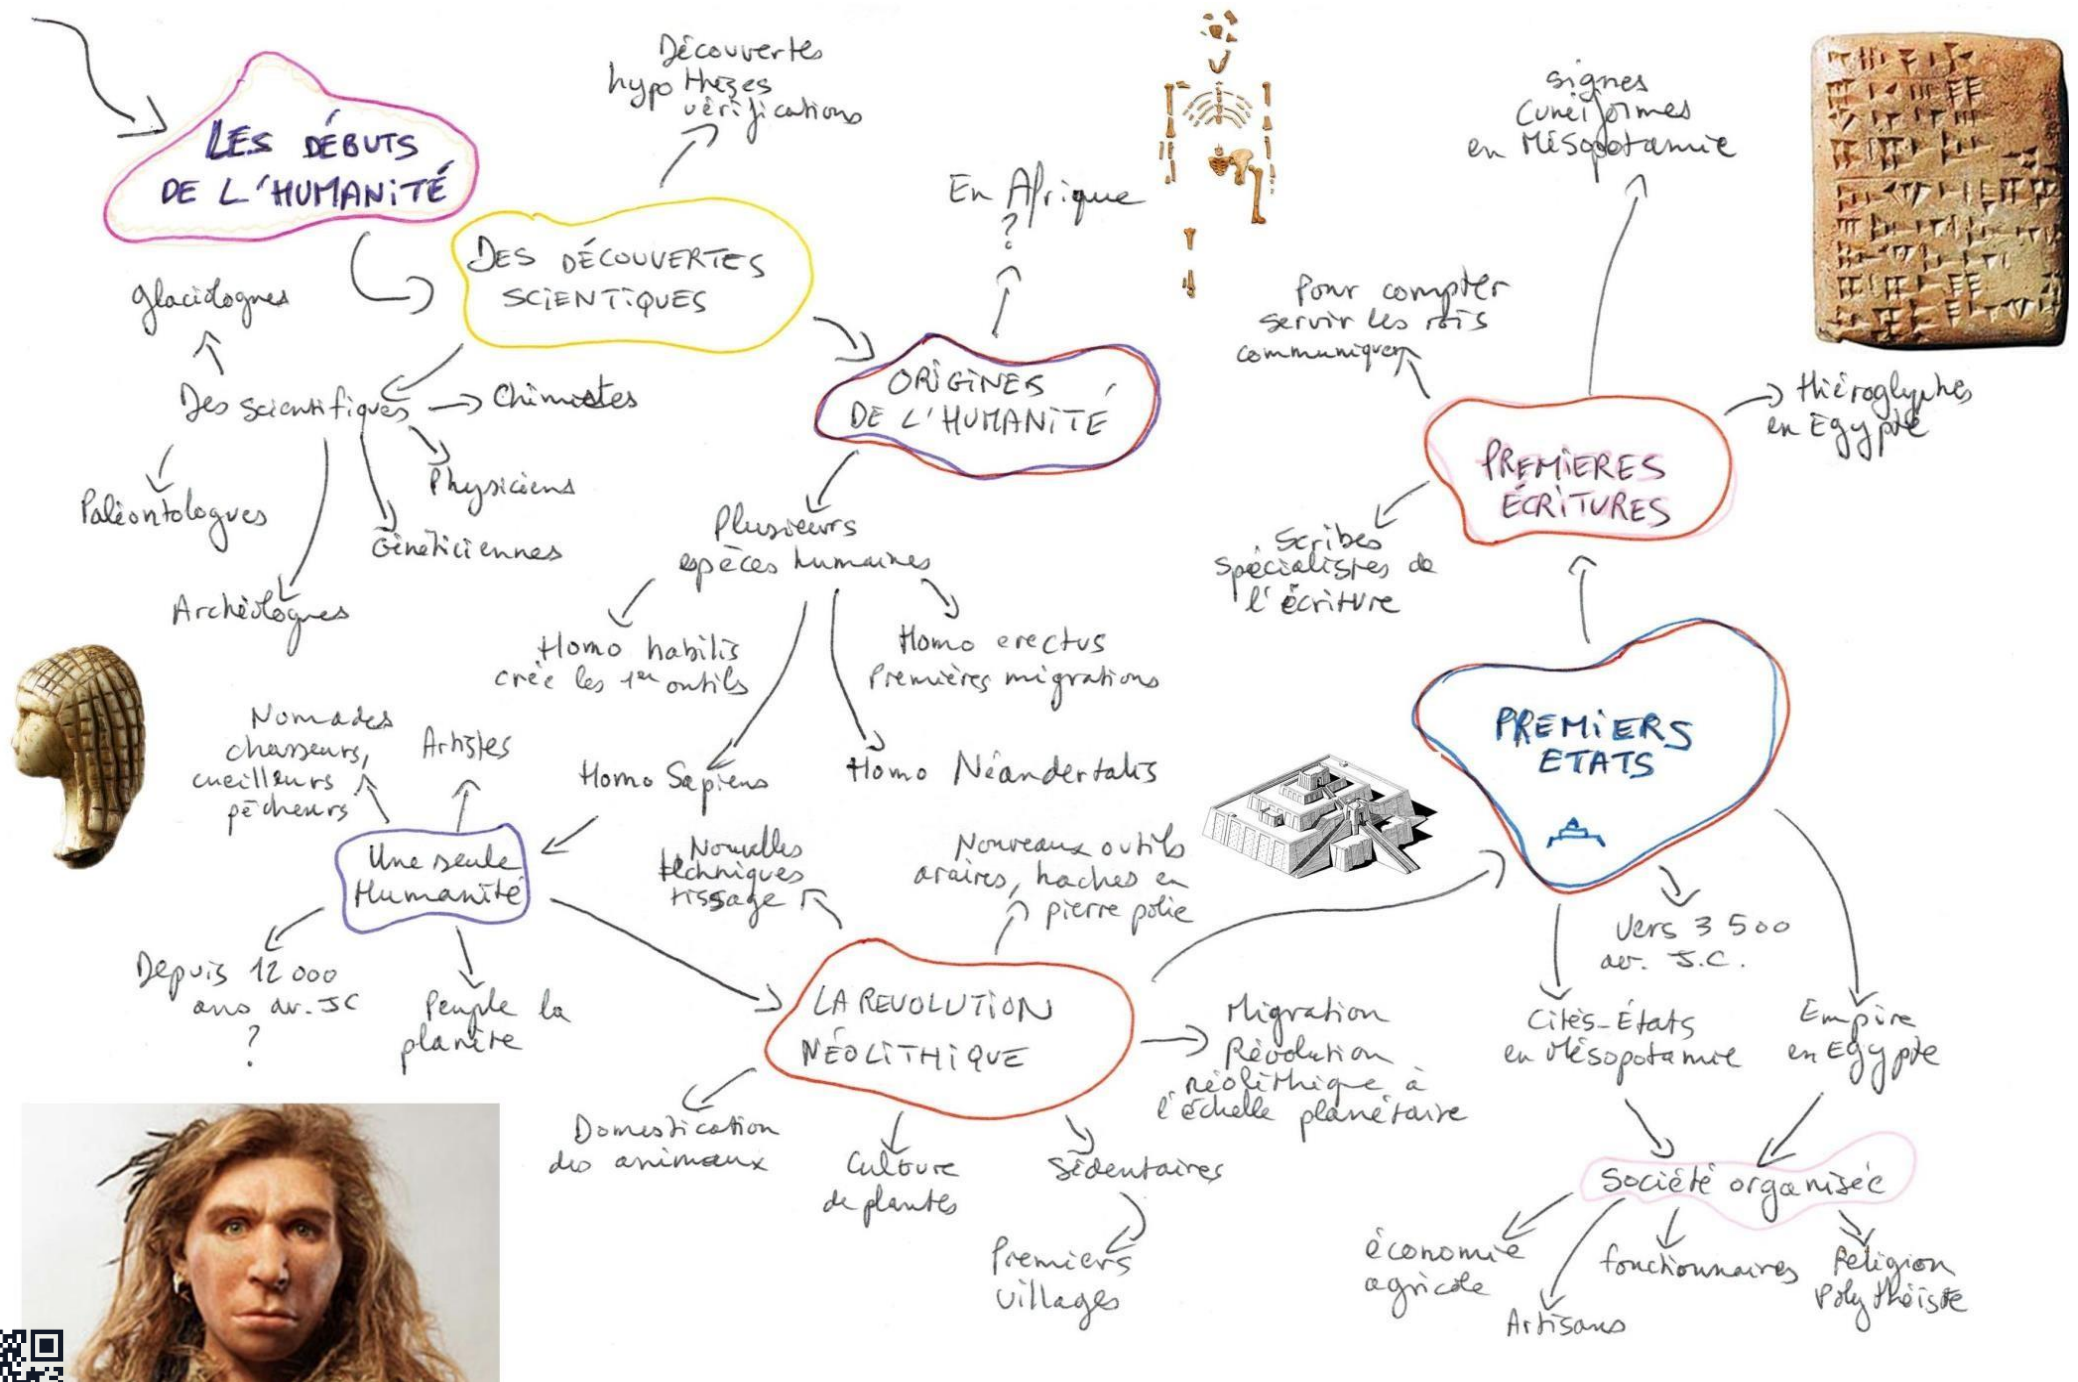 LES DÉBUTS
DE L'HUMANITÉ
Découvertes
hypothèses
vérifications
DES DÉCOUVERTES
SCIENTIQUES
glaciologues
Des scientifiques
Chimistes
Physiciens
Généticiennes
Paléontologues
Archéologues
En Afrique
?
ORIGINES
DE L'HUMANITÉ
Plusieurs
espèces humaines
Homo habilis
crée les 1er outils
Homo erectus
Premières migrations
Homo Sapiens
Homo Néandertalis
Nomades
chasseurs,
cueilleurs
pêcheurs
Artistes
Une seule
Humanité
Depuis 12 000
ans av. JC
?
Peuple la
planète
Nouvelles
techniques
tissage
Nouveaux outils
araires, haches en
pierre polie
LA REVOLUTION
NÉOLITHIQUE
Domestication
des animaux
Culture
de plantes
Sédentaires
Premiers
villages
Migration
Révolution
néolithique à
l'échelle planétaire
PREMIERS
ETATS
Vers 3 500
av. J.C.
Cités-États
en Mésopotamie
Empire
en Egypte
Société organisée
économie
agricole
Artisans
fonctionnaires
Religion
Polythéiste
PREMIERES
ÉCRITURES
Scribes
spécialistes de
l'écriture
Pour compter
servir les rois
communiquer
signes
Cunéiformes
en Mésopotamie
Hiéroglyphes
en Egypte